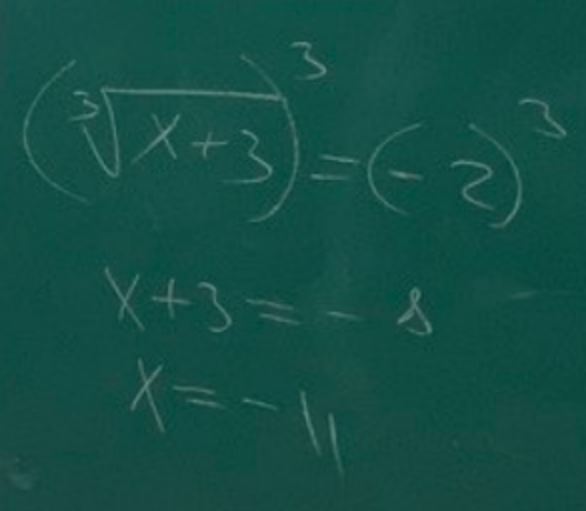 (∛(x+3))³ = (-2)³
x+3 = -8
x = -11